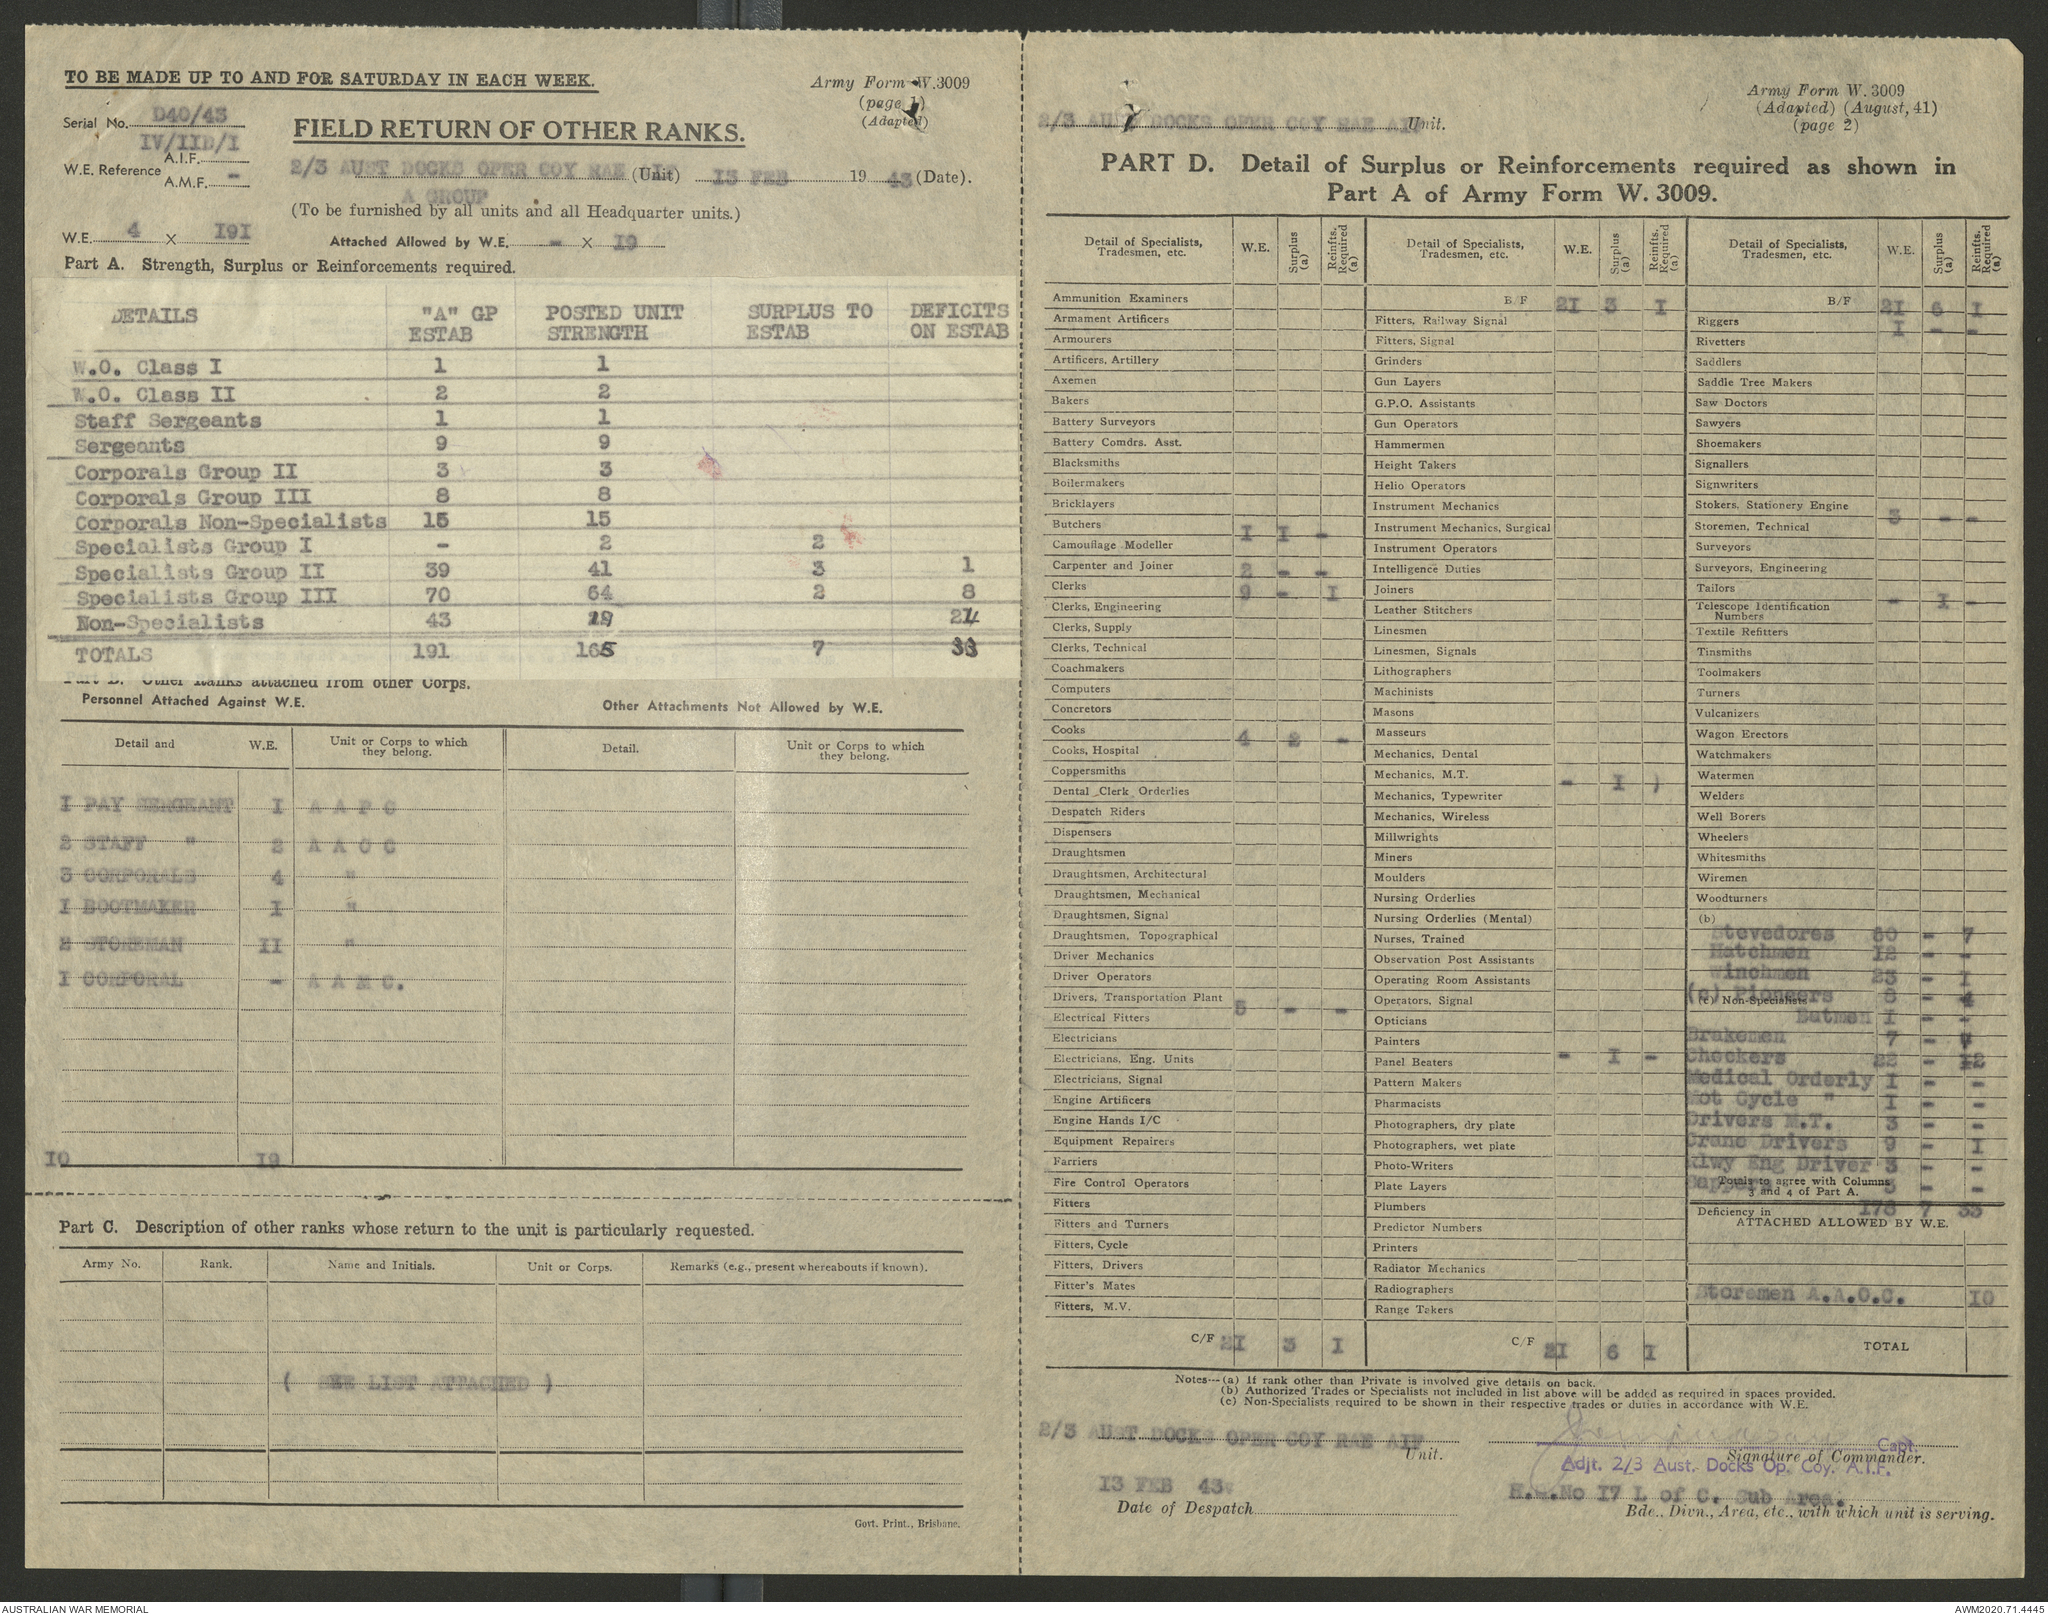 TO BE MADE UP TO AND FOR SATURDAY IN EACH WEEK.
Army Form W.3009
(page 1)
(Adapted)
Serial No. D40/43
IV/IID/I
W.E. Reference A.I.F.
A.M.F. -
FIELD RETURN OF OTHER RANKS.
2/3 AUST DOCKS OPER COY RAE AIF (Unit) 13 FEB 1943 (Date).
A GROUP
(To be furnished by all units and all Headquarter units.)
W.E. 4 X 191 Attached Allowed by W.E. - X 19
Part A. Strength, Surplus or Reinforcements required.
DETAILS "A" GP ESTAB POSTED UNIT STRENGTH SURPLUS TO ESTAB DEFICITS ON ESTAB
W.O. Class I 1 1
W.O. Class II 2 2
Staff Sergeants 1 1
Sergeants 9 9
Corporals Group II 3 3
Corporals Group III 8 8
Corporals Non-Specialists 15 15
Specialists Group I - 2 2
Specialists Group II 39 41 3 1
Specialists Group III 70 64 2 8
Non-Specialists 43 24
TOTALS 191 165 7 33
Part B. Other Ranks attached from other Corps.
Personnel Attached Against W.E. Other Attachments Not Allowed by W.E.
Detail and W.E. Unit or Corps to which they belong. Detail. Unit or Corps to which they belong.
1 PAY SERGEANT 1 A A P C
2 STAFF " 2 A A O C
3 CORPORALS 4 "
1 BOOTMAKER 1 "
2 STOREMAN 11 "
1 CORPORAL - A A M C.
10 19
Part C. Description of other ranks whose return to the unit is particularly requested.
Army No. Rank. Name and Initials. Unit or Corps. Remarks (e.g., present whereabouts if known).
( SEE LIST ATTACHED )
Govt. Print., Brisbane.
Army Form W. 3009
(Adapted) (August, 41)
(page 2)
2/3 AUST DOCKS OPER COY RAE AIF Unit.
PART D. Detail of Surplus or Reinforcements required as shown in
Part A of Army Form W. 3009.
Detail of Specialists, Tradesmen, etc. W.E. Surplus (a) Reinfts. Required (a)
Ammunition Examiners
Armament Artificers
Armourers
Artificers, Artillery
Axemen
Bakers
Battery Surveyors
Battery Comdrs. Asst.
Blacksmiths
Boilermakers
Bricklayers
Butchers 1 1 -
Camouflage Modeller
Carpenter and Joiner 2 - -
Clerks 9 - 1
Clerks, Engineering
Clerks, Supply
Clerks, Technical
Coachmakers
Computers
Concretors
Cooks 4 2 -
Cooks, Hospital
Coppersmiths
Dental Clerk Orderlies
Despatch Riders
Dispensers
Draughtsmen
Draughtsmen, Architectural
Draughtsmen, Mechanical
Draughtsmen, Signal
Draughtsmen, Topographical
Driver Mechanics
Driver Operators
Drivers, Transportation Plant 5 - -
Electrical Fitters
Electricians
Electricians, Eng. Units
Electricians, Signal
Engine Artificers
Engine Hands I/C
Equipment Repairers
Farriers
Fire Control Operators
Fitters
Fitters and Turners
Fitters, Cycle
Fitters, Drivers
Fitter's Mates
Fitters, M.V.
C/F 21 3 1
Detail of Specialists, Tradesmen, etc. W.E. Surplus (a) Reinfts. Required (a)
B/F 21 3 1
Fitters, Railway Signal
Fitters, Signal
Grinders
Gun Layers
G.P.O. Assistants
Gun Operators
Hammermen
Height Takers
Helio Operators
Instrument Mechanics
Instrument Mechanics, Surgical
Instrument Operators
Intelligence Duties
Joiners
Leather Stitchers
Linesmen
Linesmen, Signals
Lithographers
Machinists
Masons
Masseurs
Mechanics, Dental
Mechanics, M.T. - 1 )
Mechanics, Typewriter
Mechanics, Wireless
Millwrights
Miners
Moulders
Nursing Orderlies
Nursing Orderlies (Mental)
Nurses, Trained
Observation Post Assistants
Operating Room Assistants
Operators, Signal
Opticians
Painters
Panel Beaters - 1 -
Pattern Makers
Pharmacists
Photographers, dry plate
Photographers, wet plate
Photo-Writers
Plate Layers
Plumbers
Predictor Numbers
Printers
Radiator Mechanics
Radiographers
Range Takers
C/F 21 6 1
Detail of Specialists, Tradesmen, etc. W.E. Surplus (a) Reinfts. Required (a)
B/F 21 6 1
Riggers 1 - -
Rivetters
Saddlers
Saddle Tree Makers
Saw Doctors
Sawyers
Shoemakers
Signallers
Signwriters
Stokers, Stationery Engine
Storemen, Technical 3 - -
Surveyors
Surveyors, Engineering
Tailors
Telescope Identification Numbers - 1 -
Textile Refitters
Tinsmiths
Toolmakers
Turners
Vulcanizers
Wagon Erectors
Watchmakers
Watermen
Welders
Well Borers
Wheelers
Whitesmiths
Wiremen
Woodturners
(b)
Stevedores 60 - 7
Hatchmen 12 - -
Winchmen 23 - 1
(c) Non-Specialists
(c) Pioneers - 4
Batmen 1 - -
Brakemen 7 -
Checkers 22 - 12
Medical Orderly 1 - -
Mot Cycle " 1 - -
Drivers M.T. 3 - -
Crane Drivers 9 - 1
Rlwy Eng Driver 3 - -
Sappers 3 - -
Totals to agree with Columns 3 and 4 of Part A.
178 7 33
Deficiency in
ATTACHED ALLOWED BY W.E.
Storemen A.A.O.C. 10
TOTAL
Notes--(a) If rank other than Private is involved give details on back.
(b) Authorized Trades or Specialists not included in list above will be added as required in spaces provided.
(c) Non-Specialists required to be shown in their respective trades or duties in accordance with W.E.
2/3 AUST DOCKS OPER COY RAE AIF
Unit.
Capt.
Signature of Commander.
Adjt. 2/3 Aust. Docks Op. Coy. A.I.F.
13 FEB 43.
Date of Despatch
No 17 L of C. Sub Area.
Bde., Divn., Area, etc., with which unit is serving.
AUSTRALIAN WAR MEMORIAL
AWM2020.71.4445